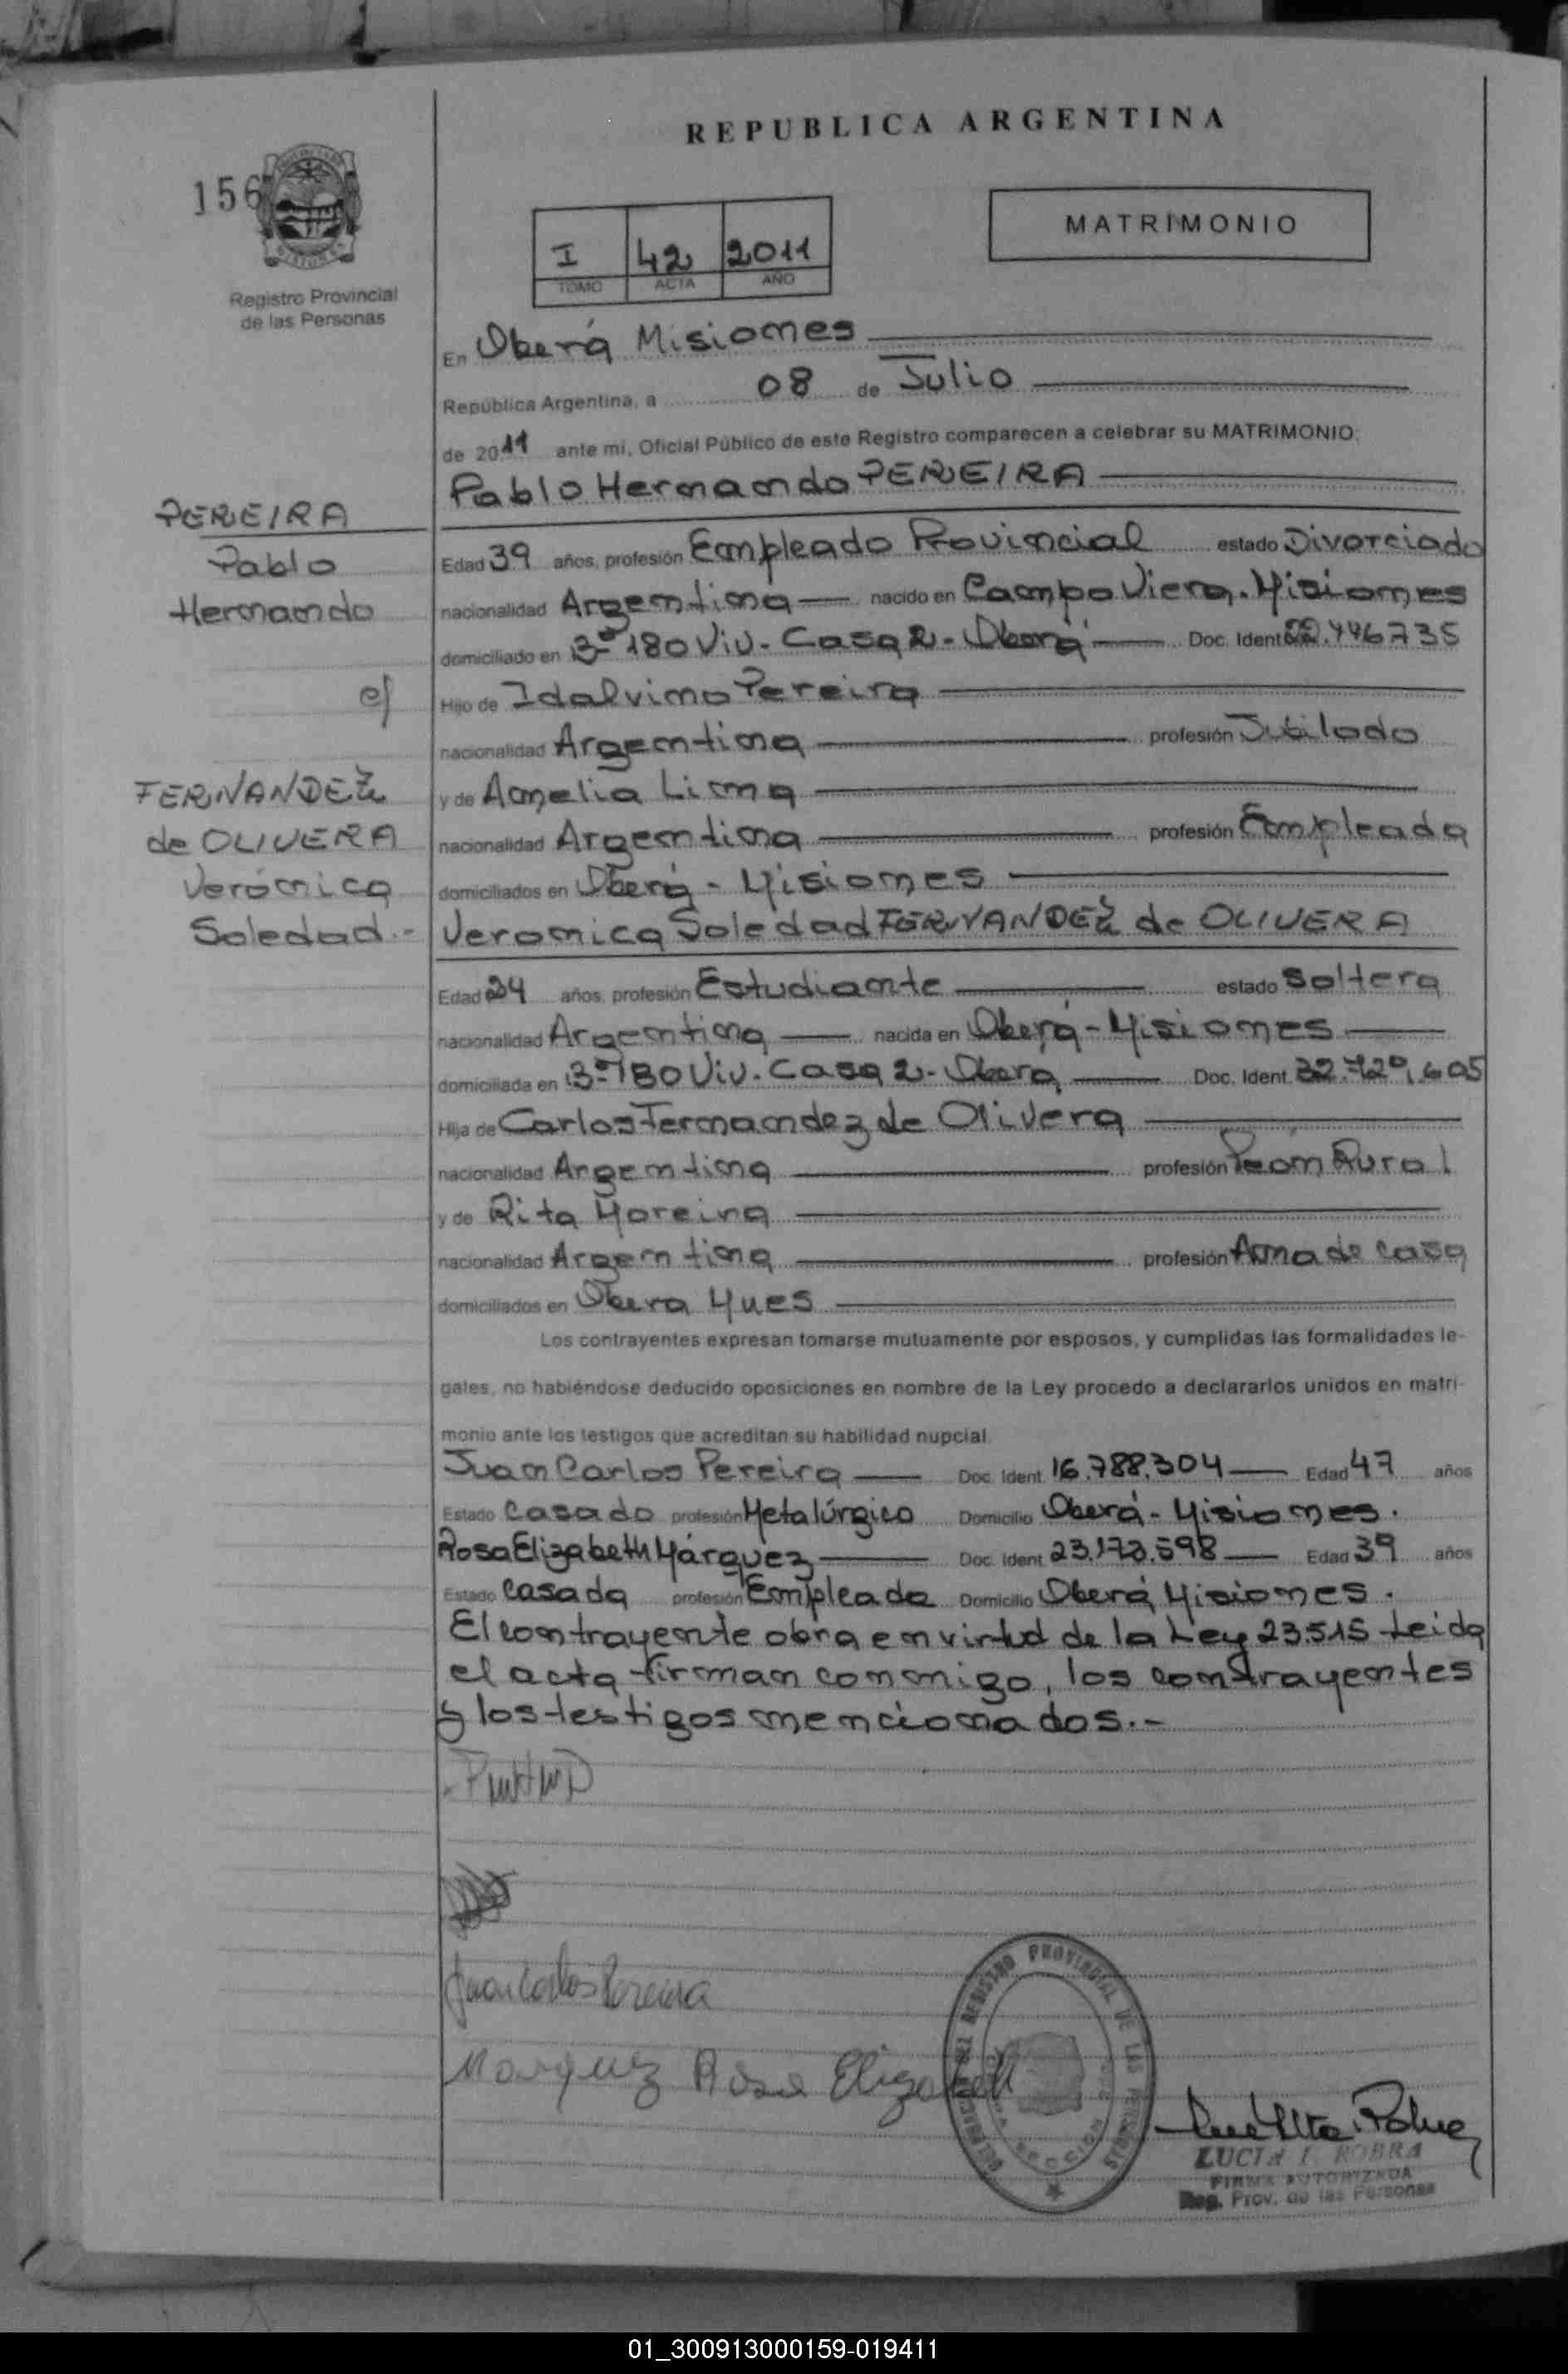 REPUBLICA ARGENTINA
156
MATRIMONIO
I 42 2011
TOMO ACTA AÑO
Registro Provincial
de las Personas
En Oberá Misiones
República Argentina, a 08 de Julio
de 2011 ante mi, Oficial Público de este Registro comparecen a celebrar su MATRIMONIO:
Pablo Hernando PEREIRA
PEREIRA
Pablo
Hernando
c/
FERNANDEZ
de OLIVERA
Verónica
Soledad.-
Edad 39 años, profesión Empleado Provincial estado Divorciado
nacionalidad Argentina nacido en Campo Viera. Misiones
domiciliado en B° 180 Viv. Casa 2 - Oberá Doc. Ident 22.446735
Hijo de Idalvino Pereira
nacionalidad Argentina profesión Jubilado
y de Amelia Lima
nacionalidad Argentina profesión Empleada
domiciliados en Oberá - Misiones
Veronica Soledad FERNANDEZ de OLIVERA
Edad 24 años, profesión Estudiante estado Soltera
nacionalidad Argentina nacida en Oberá - Misiones
domiciliada en B° 180 Viv. Casa 2 - Obera Doc. Ident. 32.720,605
Hija de Carlos Fernandez de Olivera
nacionalidad Argentina profesión Peon Rural
y de Rita Moreira
nacionalidad Argentina profesión Ama de casa
domiciliados en Obera Mnes
Los contrayentes expresan tomarse mutuamente por esposos, y cumplidas las formalidades le-
gales, no habiéndose deducido oposiciones en nombre de la Ley procedo a declararlos unidos en matri-
monio ante los testigos que acreditan su habilidad nupcial.
Juan Carlos Pereira Doc. Ident. 16.788.304 Edad 47 años
Estado Casado profesión Metalúrgico Domicilio Oberá - Misiones.
Rosa Elizabeth Márquez Doc. Ident. 23.173.598 Edad 39 años
Estado Casada profesión Empleada Domicilio Oberá Misiones.
El contrayente obra en virtud de la Ley 23.515 Leida
el acta firman conmigo, los contrayentes
y los testigos mencionados.-
Juan Carlos Pereira
Marquez Rosa Elizabeth
REGISTRO PROVINCIAL DE LAS PERSONAS
SECCION
LUCIA I. ROBRA
FIRMA AUTORIZADA
Reg. Prov. de las Personas
01_300913000159-019411